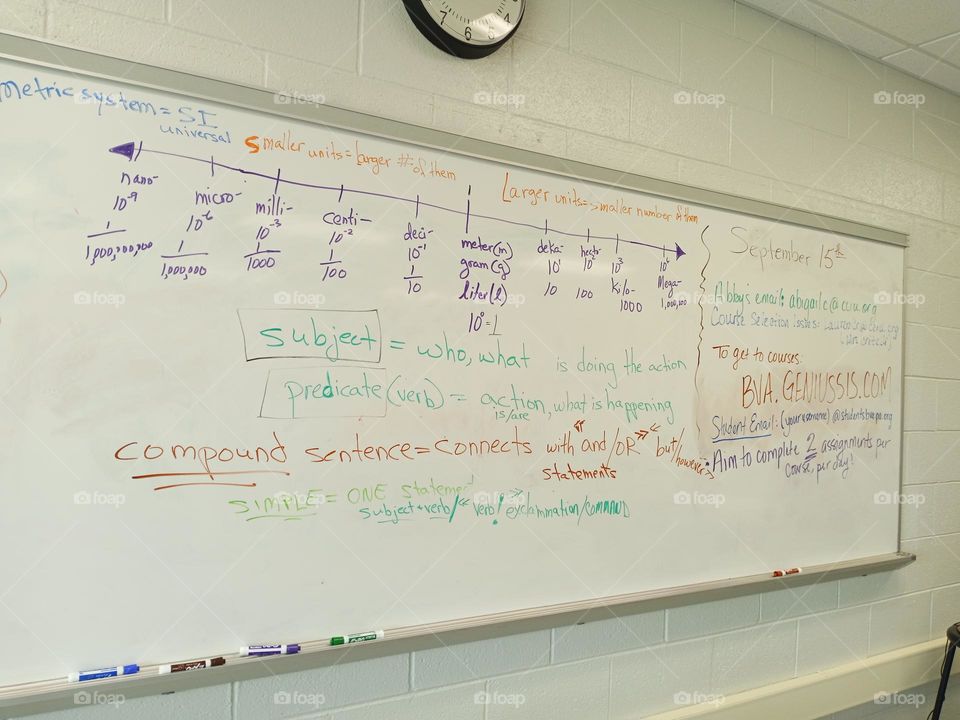 metric system = SI
universal
Smaller units = Larger # of them
Larger units => smaller number of them
nano-
10⁻⁹
1/1,000,000,000
micro-
10⁻⁶
1/1,000,000
milli-
10⁻³
1/1000
centi-
10⁻²
1/100
deci-
10⁻¹
1/10
meter(m)
gram(g)
liter(l)
10⁰=1
deka-
10¹
10
hecto-
10²
100
10³
Kilo-
1000
10⁶
Mega-
1,000,000
subject = who, what is doing the action
predicate (verb) = action, what is happening
is/are
compound sentence = connects with "and/OR" "but/however"
statements
SIMPLE = ONE statement
subject + verb / "verb!" exclammation/COMMAND
September 15th
Abby's email: abigailc@
Course Selection issues:
To get to courses:
BVA.GENIUSSIS.COM
Student Email: (your username)@students.bvapa.org
• Aim to complete 2 assignments per
course, per day!
7 6 5 4
foap